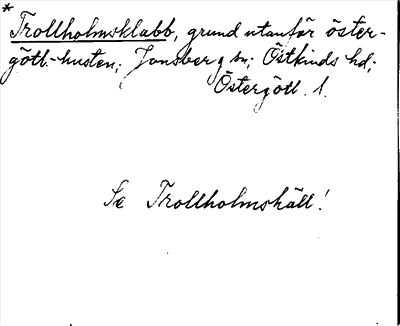 *
Trollholmsklabb, grund utanför öster-
götl.-kusten; Jonsberg sn; Östkinds hd;
Östergötl. l.
Se Trollholmshäll!